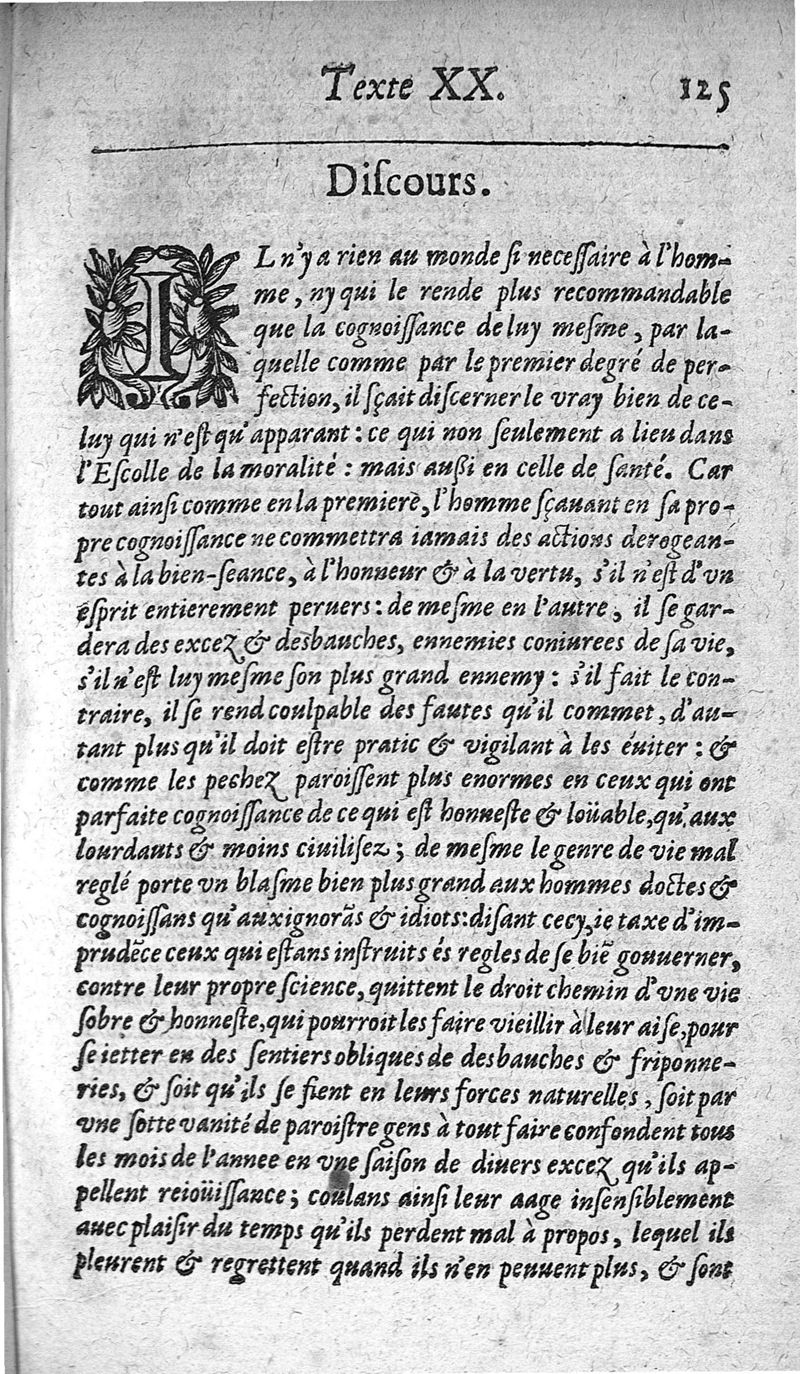 Texte XX. 125
Diſcours.
IL n'y a rien au monde ſi neceſſaire à l'hom-
me, ny qui le rende plus recommandable
que la cognoiſſance de luy meſme, par la-
quelle comme par le premier degré de per-
fection, il ſçait diſcerner le vray bien de ce-
luy qui n'eſt qu'apparant: ce qui non ſeulement a lieu dans
l'Eſcolle de la moralité: mais auſſi en celle de ſanté. Car
tout ainſi comme en la premiere, l'homme ſçauant en ſa pro-
pre cognoiſſance ne commettra iamais des actions derogean-
tes à la bien-ſeance, à l'honneur & à la vertu, s'il n'eſt d'vn
eſprit entierement peruers: de meſme en l'autre, il ſe gar-
dera des excez & desbauches, ennemies coniurees de ſa vie,
s'il n'eſt luy meſme ſon plus grand ennemy: s'il fait le con-
traire, il ſe rend coulpable des fautes qu'il commet, d'au-
tant plus qu'il doit eſtre pratic & vigilant à les éuiter: &
comme les pechez paroiſſent plus enormes en ceux qui ont
parfaite cognoiſſance de ce qui eſt honneſte & loüable, qu'aux
lourdauts & moins ciuiliſez; de meſme le genre de vie mal
reglé porte vn blaſme bien plus grand aux hommes doctes &
cognoiſſans qu'aux ignorãs & idiots: diſant cecy, ie taxe d'im-
prudẽce ceux qui eſtans inſtruits és regles de ſe biẽ gouuerner,
contre leur propre ſcience, quittent le droit chemin d'vne vie
ſobre & honneſte, qui pourroit les faire vieillir à leur aiſe, pour
ſe ietter en des ſentiers obliques de desbauches & friponne-
ries, & ſoit qu'ils ſe fient en leurs forces naturelles, ſoit par
vne ſotte vanité de paroiſtre gens à tout faire confondent tous
les mois de l'annee en vne ſaiſon de diuers excez qu'ils ap-
pellent reioüiſſance; coulans ainſi leur aage inſenſiblement
auec plaiſir du temps qu'ils perdent mal à propos, lequel ils
pleurent & regrettent quand ils n'en peuuent plus, & ſont